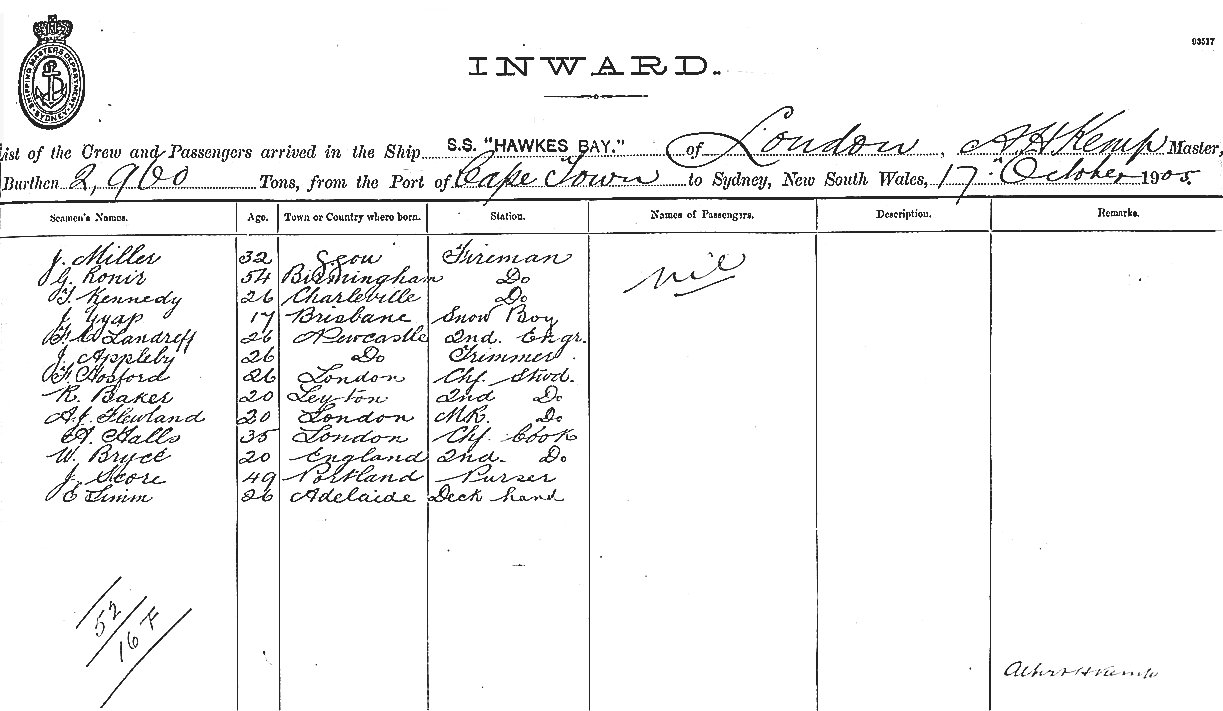 SHIPPING MASTERS DEPARTMENT SYDNEY
93517
INWARD.
List of the Crew and Passengers arrived in the Ship S.S. "HAWKES BAY." of London, A H Kemp Master,
Burthen 2,960 Tons, from the Port of Cape Town to Sydney, New South Wales, 17 October 1905.
Seamen's Names. Age. Town or Country where born. Station. Names of Passengers. Description. Remarks.
J. Miller 32 Fireman
nil
G. 54 Birmingham Do
T. Kennedy 26 Charleville Do
J. 17 Brisbane Boy
26 Newcastle 2nd. Engr.
J. Appleby 26 Do Trimmer.
F. Hosford 26 London Chf. Stwd.
R. Baker 20 Leyton 2nd Do
A.J. Flewland 20 London Do
Halls 35 London Chf. Cook
W. Bryce 20 England 2nd. Do
J. Score 49 Portland Purser
26 Adelaide Deck hand
52
16 F
Albert H Kemp